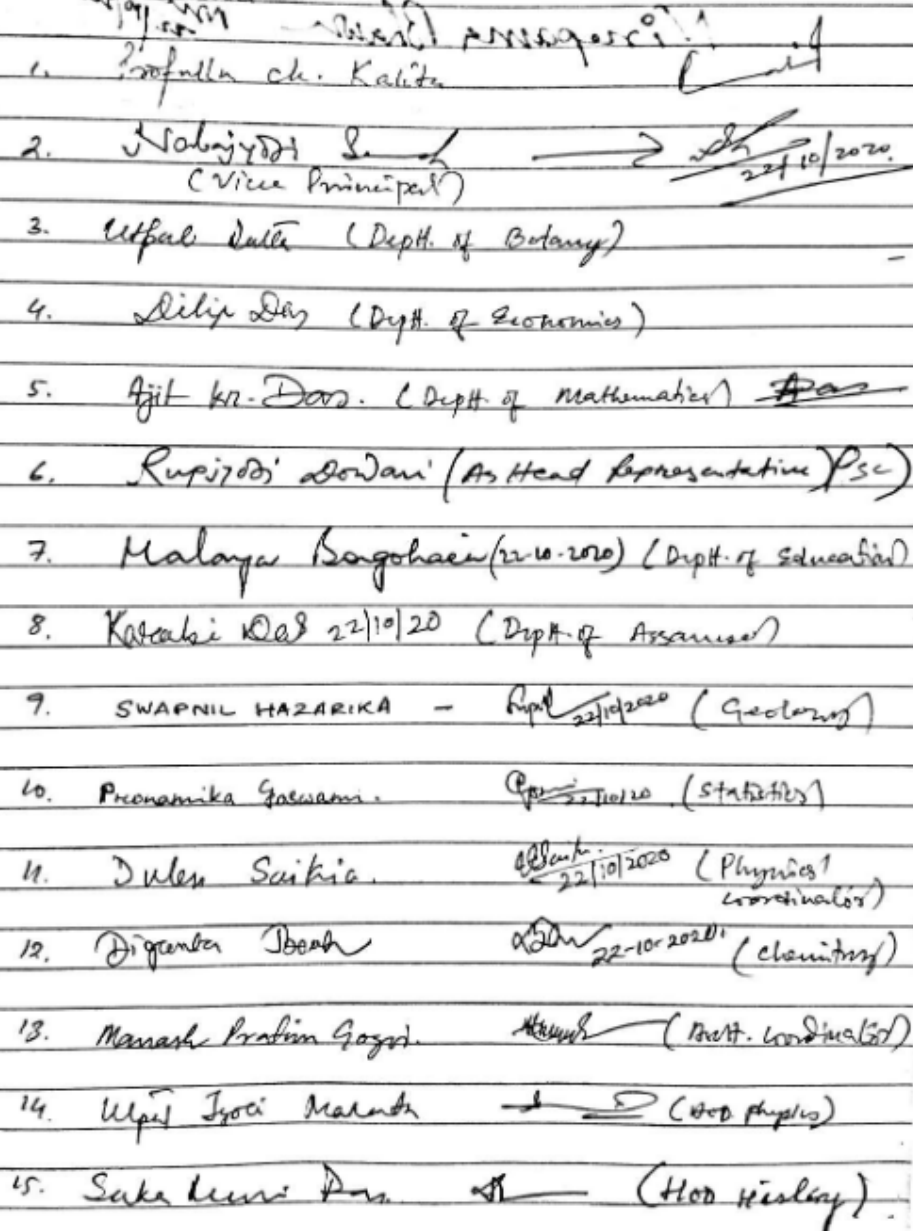 1. Profulla ch. Kalita
2. Nabajyoti 22/10/2020
(Vice Principal)
3. Utpal Dutta (Deptt. of Botany)
4. Dilip Das (Deptt. of Economics)
5. Ajit kr. Das. (Deptt. of Mathematics) Das
6. Rupjyoti Dowari (As Head Representative) (Psc)
7. Malaya Borgohain (22-10-2020) (Deptt. of Education)
8. Das 22/10/20 (Deptt. of Assamese)
9. SWAPNIL HAZARIKA - 22/10/2020 (Geology)
10. Preonamika Goswami. 22/10/20 (Statistics)
11. Dulen Saikia. 22/10/2020 (Physics
coordinator)
12. Diganta 22-10-2020 (Chemistry)
13. Manash Pratim Gogoi. (Asstt. Coordinator)
14. Jyoti (HOD physics)
15. Das (HOD History)